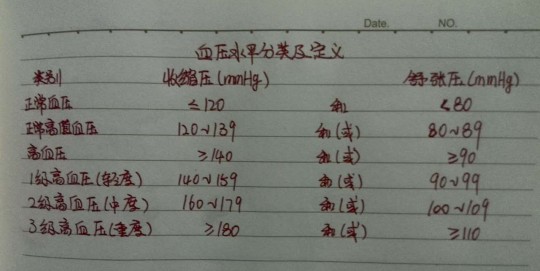 Date. NO.
血压水平分类及定义
类别 收缩压(mmHg) 舒张压(mmHg)
正常血压 ≤120 和 <80
正常高值血压 120~139 和(或) 80~89
高血压 ≥140 和(或) ≥90
1级高血压(轻度) 140~159 和(或) 90~99
2级高血压(中度) 160~179 和(或) 100~109
3级高血压(重度) ≥180 和(或) ≥110